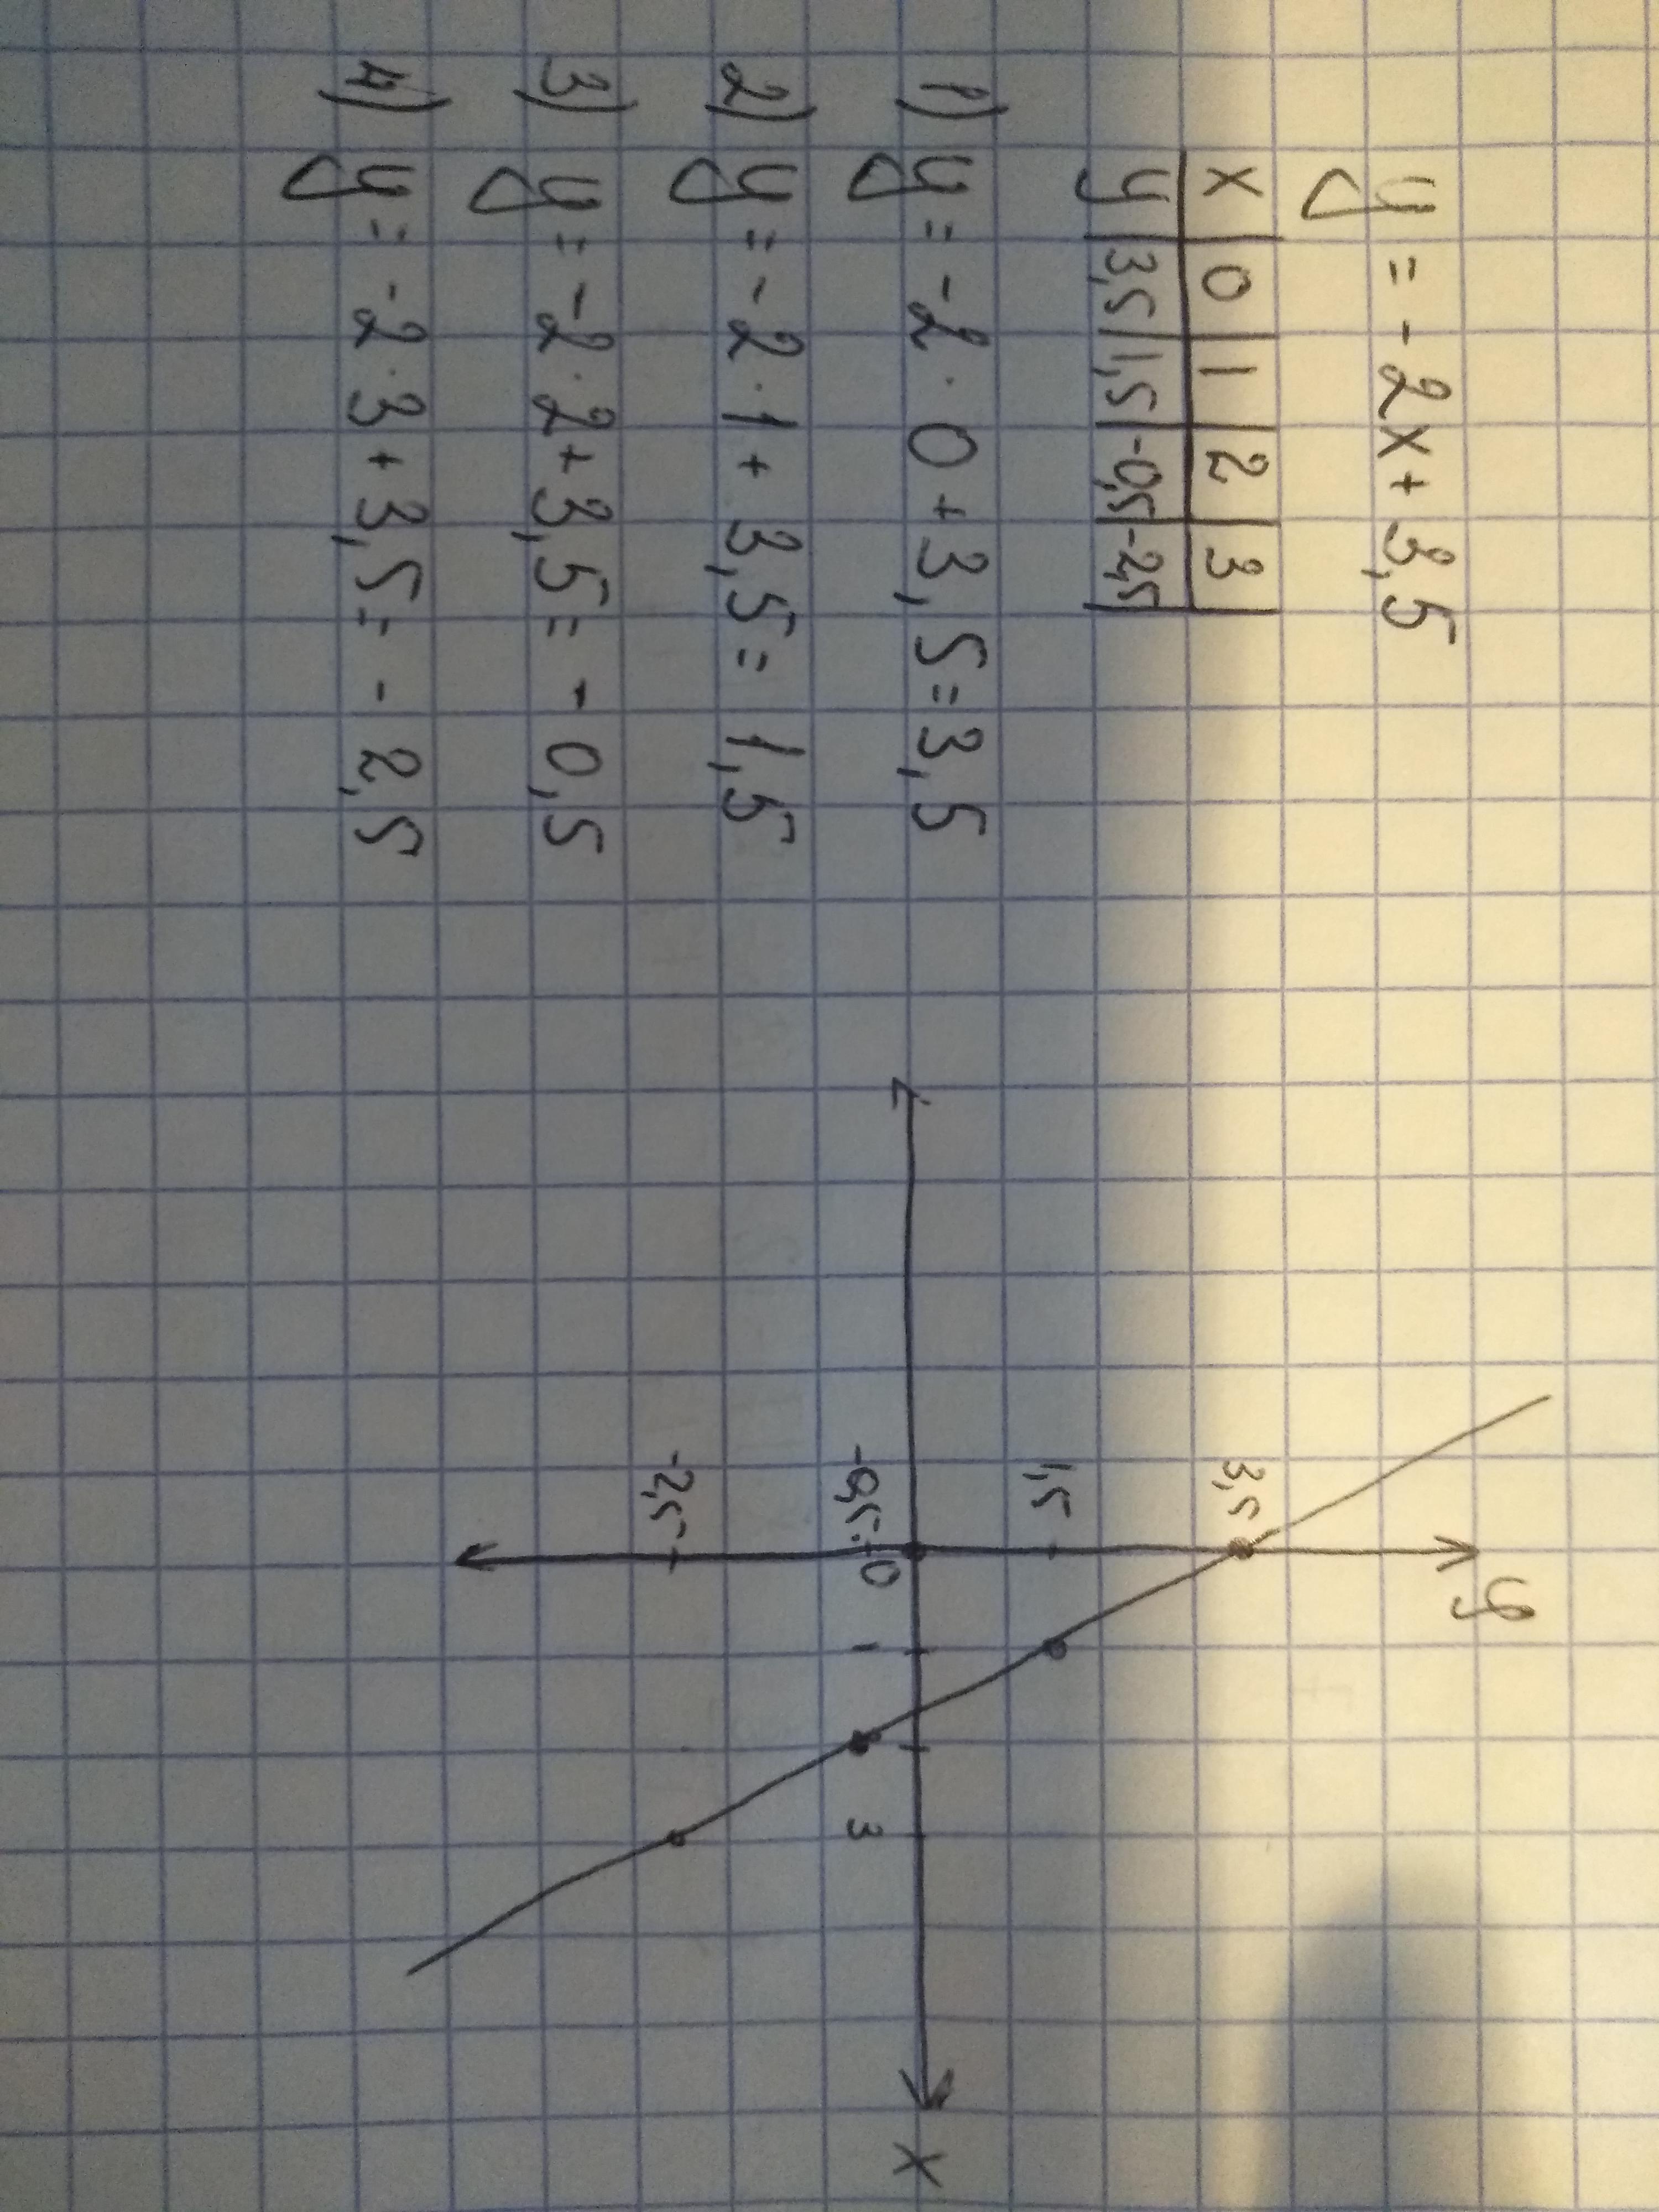 y = -2x + 3,5
x 0 1 2 3
y 3,5 1,5 -0,5 -2,5
1) y = -2 · 0 + 3,5 = 3,5
2) y = -2 · 1 + 3,5 = 1,5
3) y = -2 · 2 + 3,5 = -0,5
4) y = -2 · 3 + 3,5 = -2,5
y
3,5
1,5
-0,5 0 1 3
x
-2,5